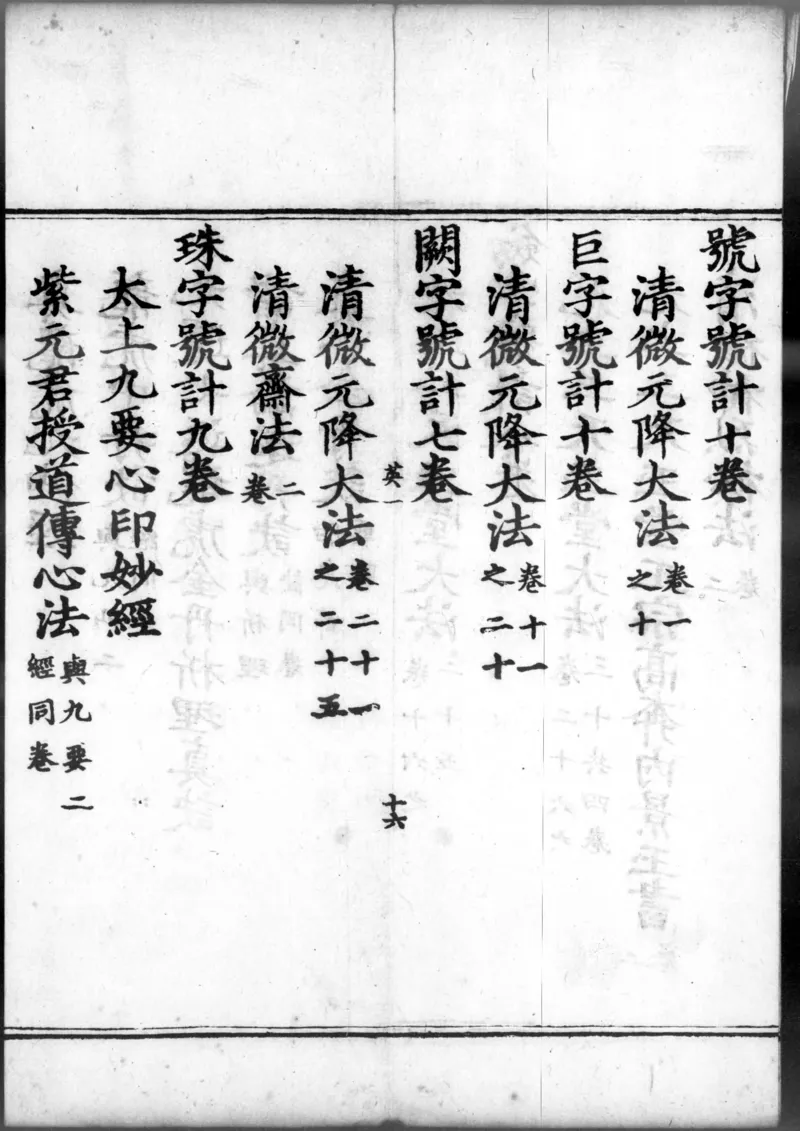 號字號計十卷
清微元降大法卷一之十
巨字號計十卷
清微元降大法卷十一之二十
闕字號計七卷
英一
十六
清微元降大法卷二十一之二十五
清微齋法二卷
珠字號計九卷
太上九要心印妙經
紫元君授道傳心法與九要二經同卷